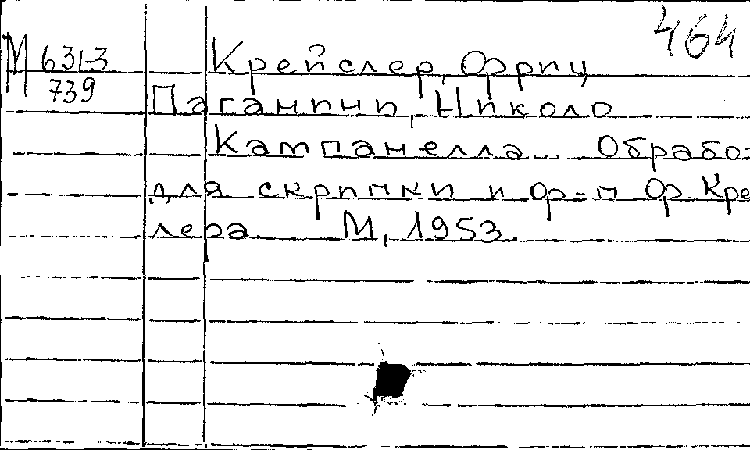 464
М 631-3
739
Крейслер, Фриц
Паганини, Николо
Кампанелла. Обрабо-
для скрипки и ф-п Фр Кре
лера М, 1953.